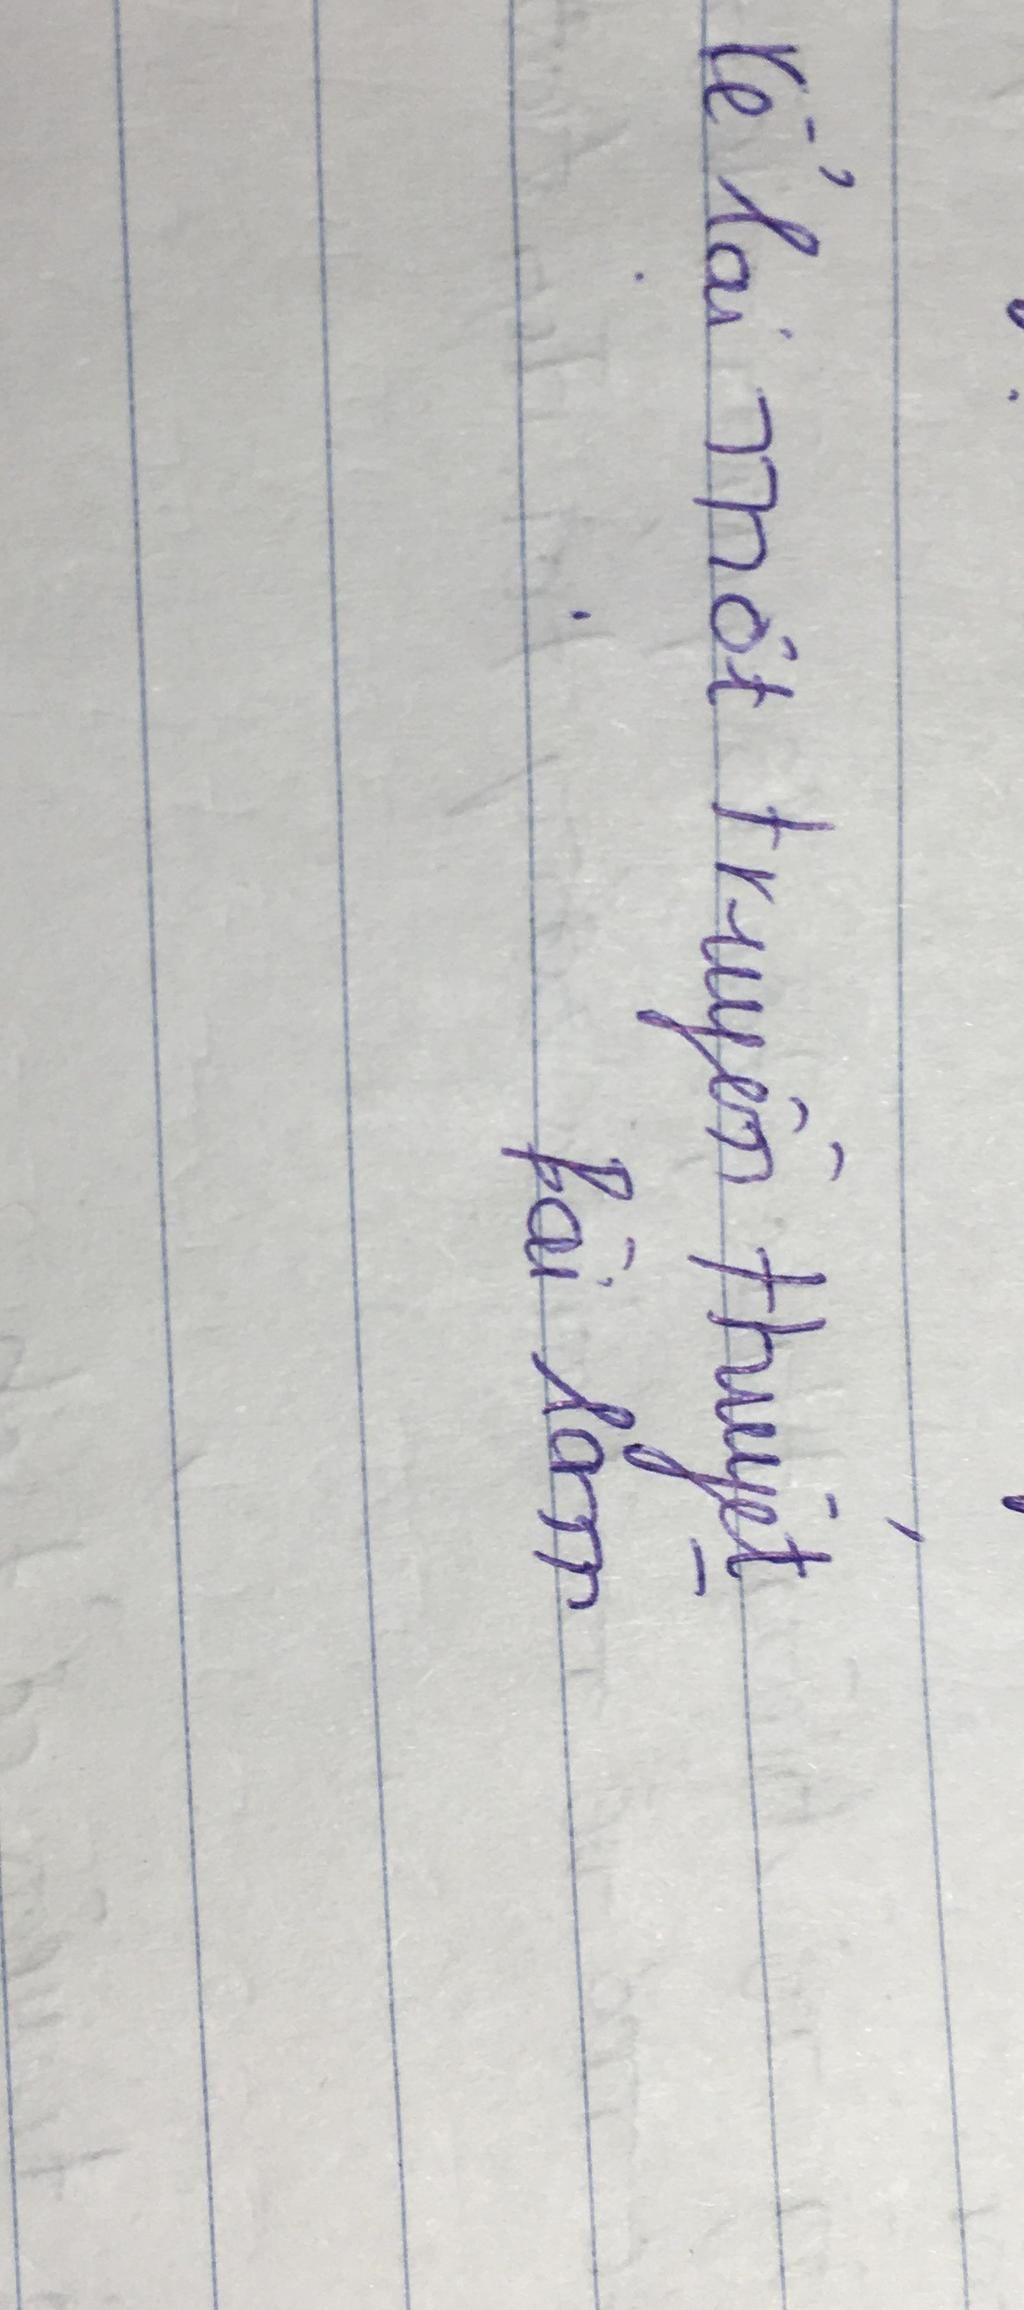 Kể lại một truyền thuyết
Bài làm